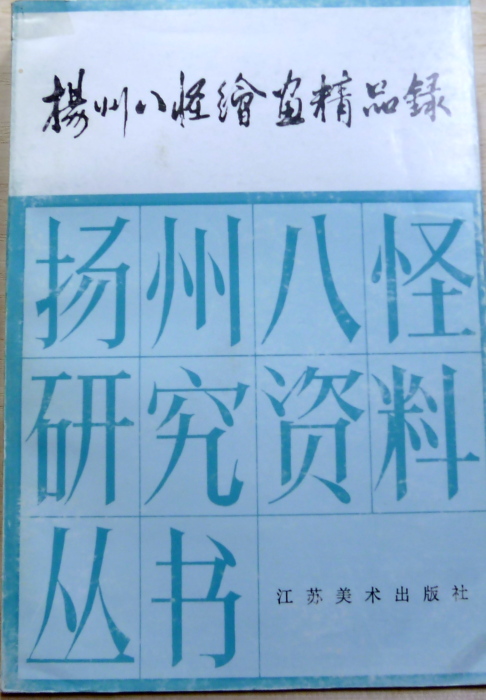 揚州八怪繪畫精品録
扬州八怪
研究资料
丛书
江苏美术出版社